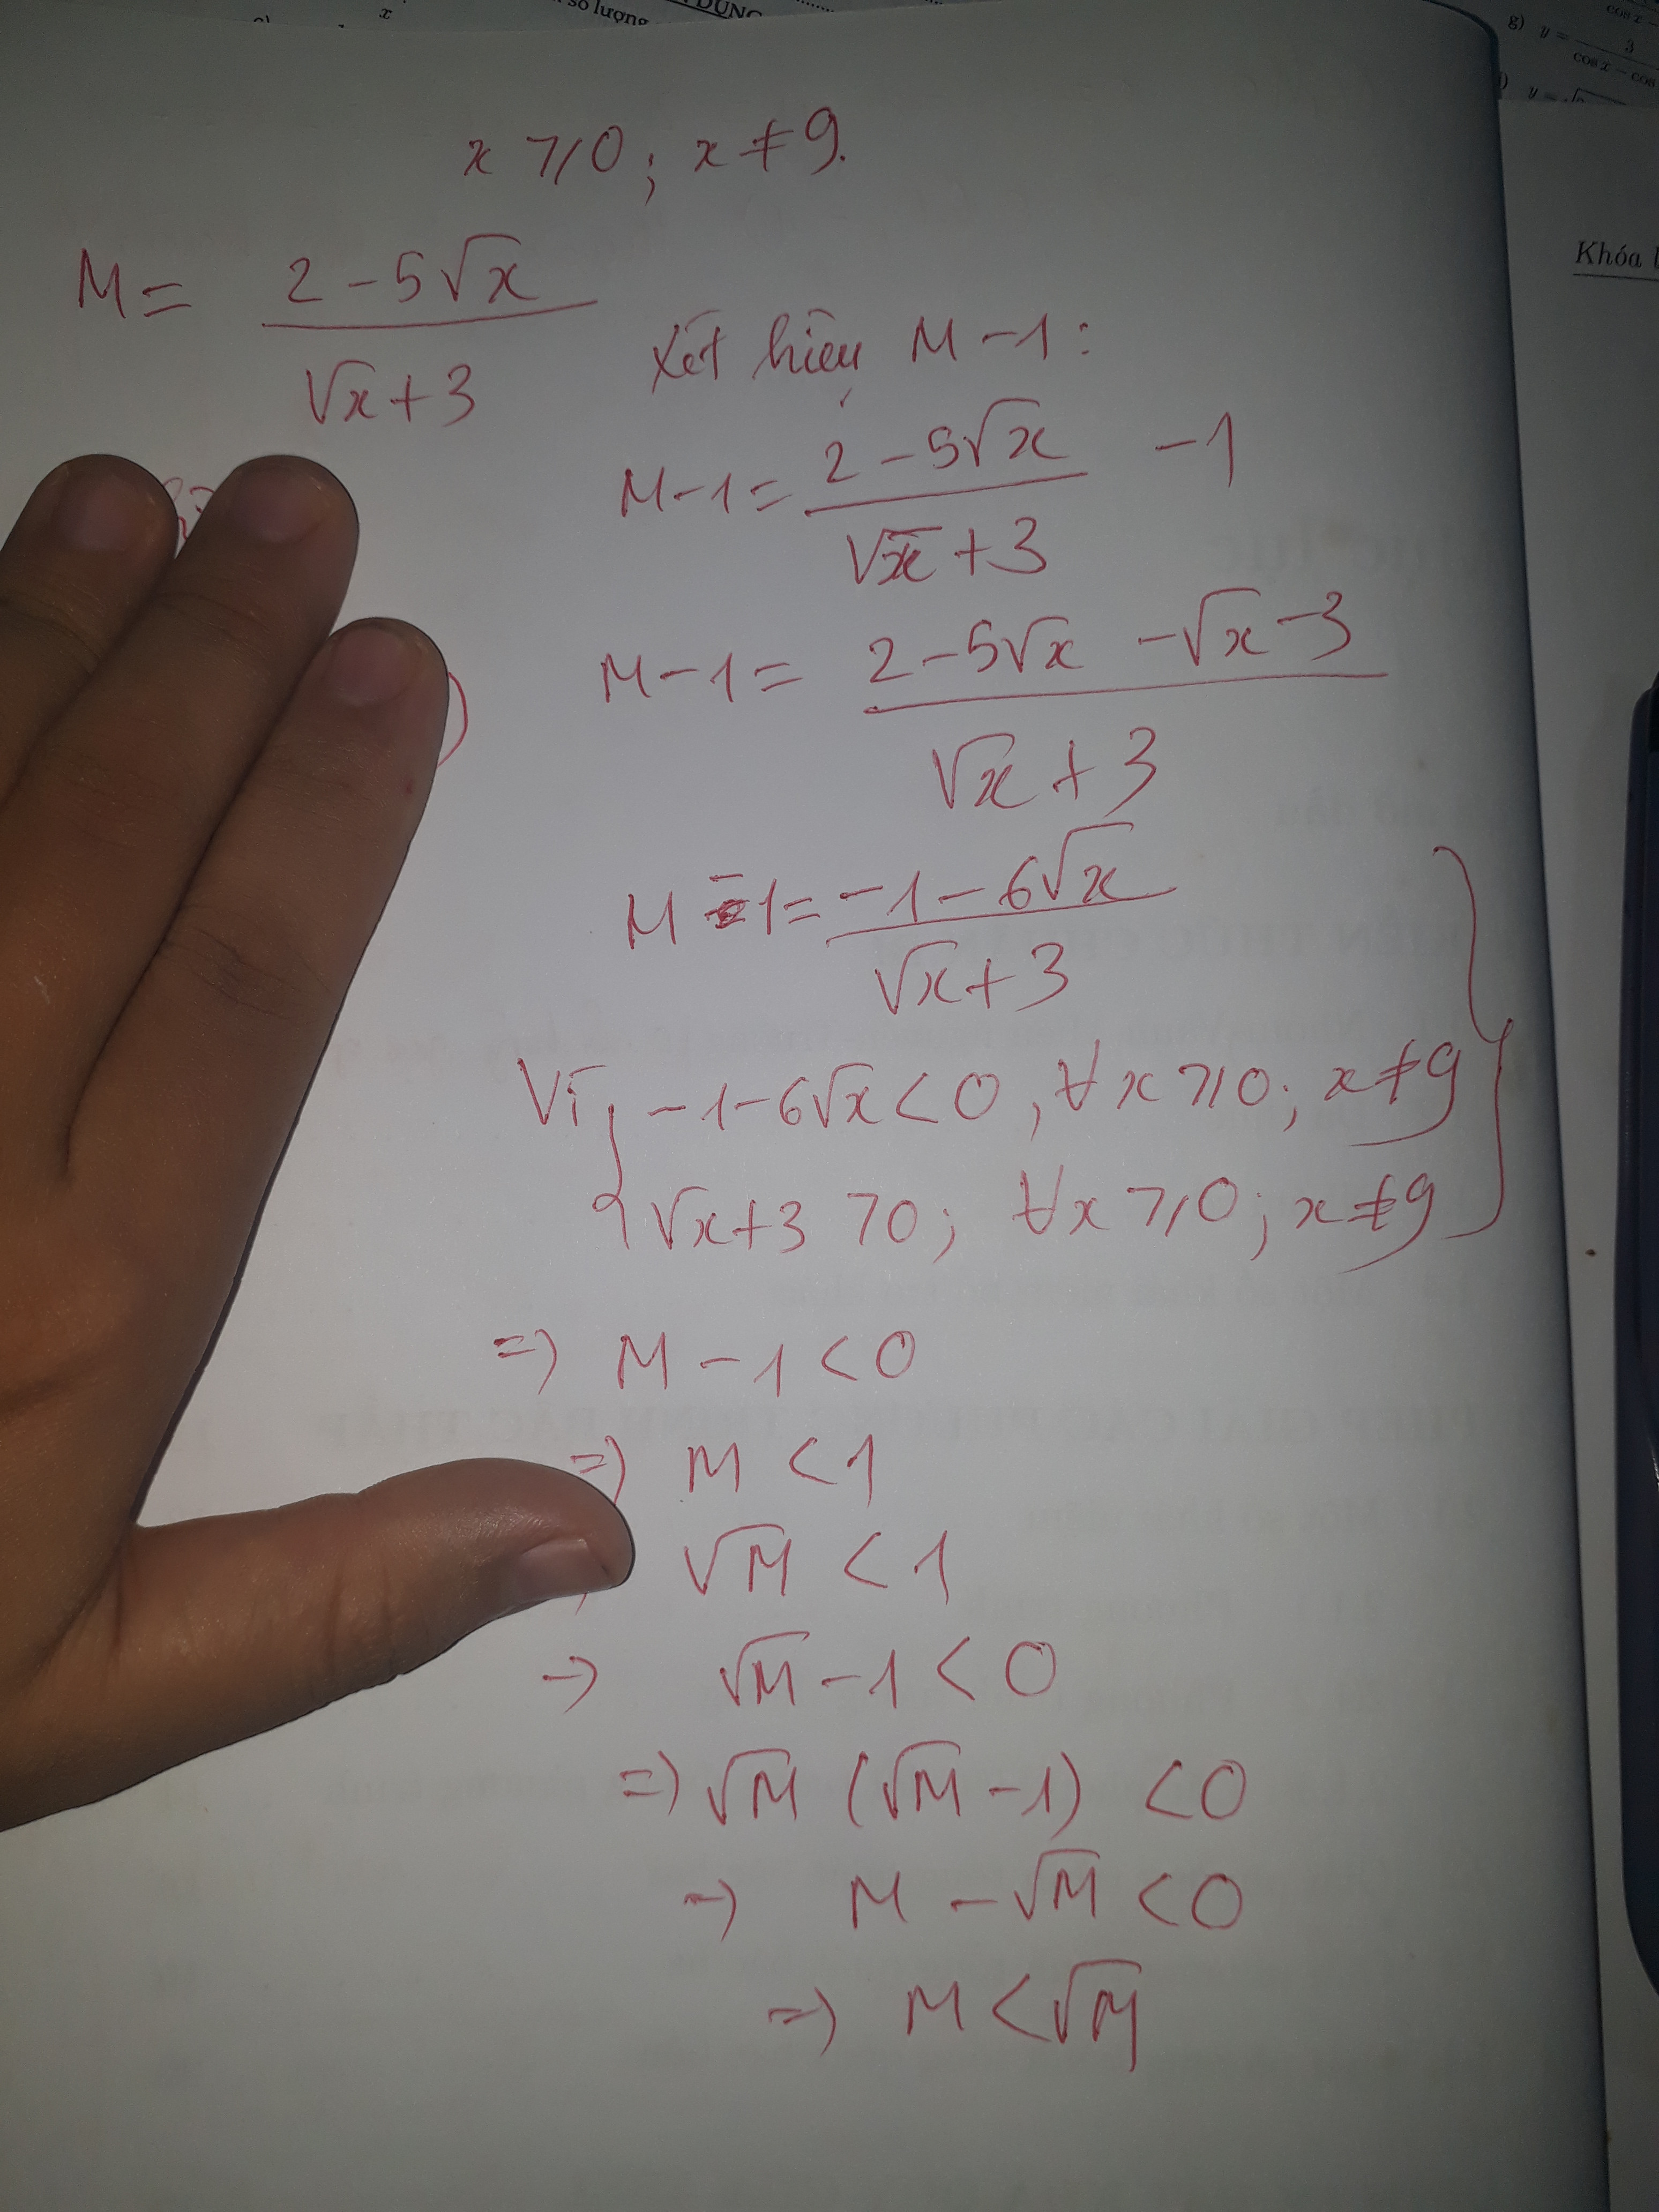 số lượng
DỤNG
x
g) y = 3 / cos x − cos
y = √
Khóa
x ⩾ 0 ; x ≠ 9.
M = (2 - 5√x) / (√x + 3)
Xét hiệu M - 1 :
M - 1 = (2 - 5√x) / (√x + 3) - 1
M - 1 = (2 - 5√x - √x - 3) / (√x + 3)
M - 1 = (-1 - 6√x) / (√x + 3)
Vì { -1 - 6√x < 0 , ∀x ⩾ 0 ; x ≠ 9
√x + 3 > 0 ; ∀x ⩾ 0 ; x ≠ 9
=> M - 1 < 0
=> M < 1
√M < 1
=> √M - 1 < 0
=> √M (√M - 1) < 0
=> M - √M < 0
=> M < √M